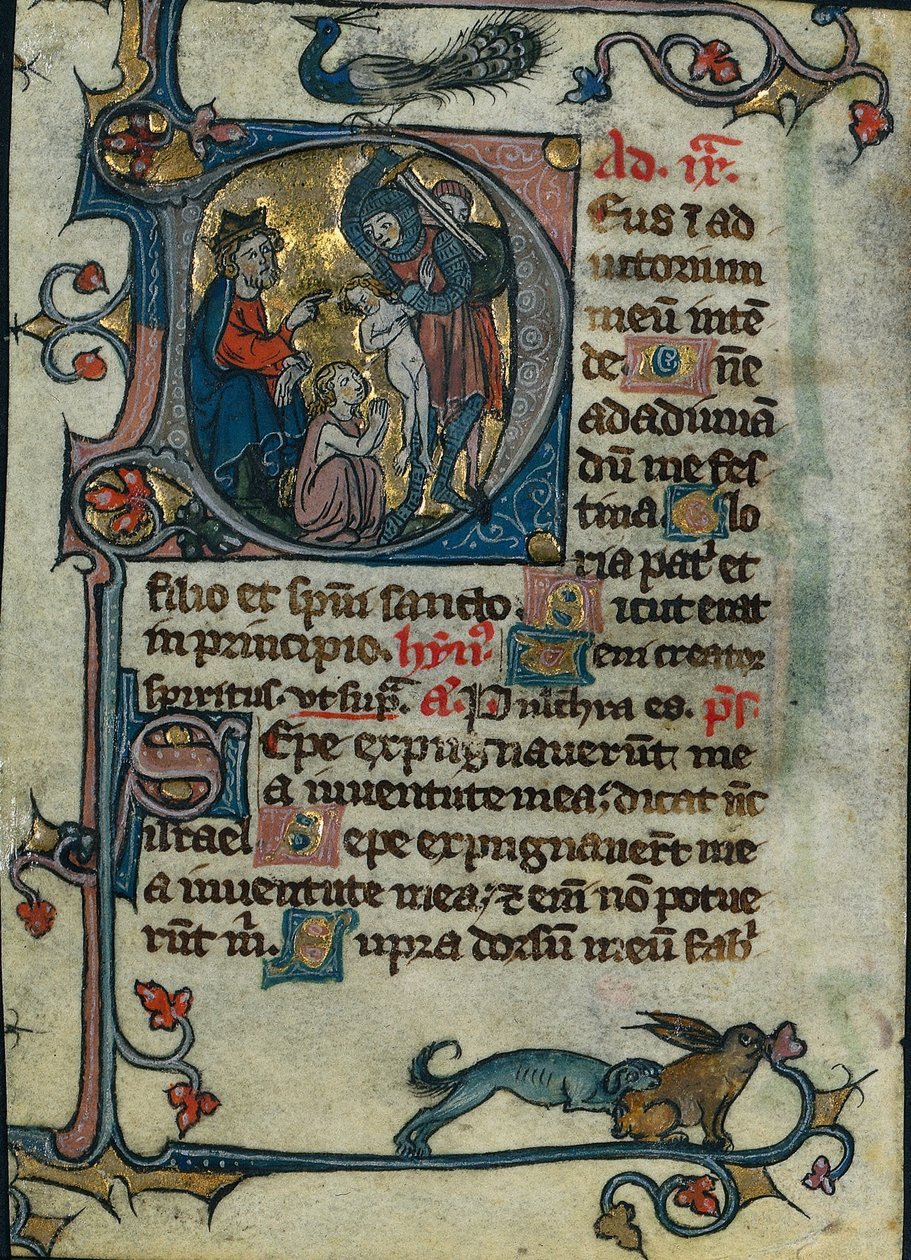 Ad. ix.
Eus ī ad
iutorium
meū intē
de Dn̄e
ad adiuuā
dū me fes
tina. Glo
ria pat᷑ et
filio et spūi sancto. Sicut erat
in principio. hyn᷒ Ueni creator
spiritus. vt sup̄. A᷑. Pulchra es. p̄s.
Sepe expugnauerūt me
a iuuentute mea; dicat nūc
israel Sepe expugnauer̄t me
a iuuentute mea; ⁊ eni̅ nō potue
rūt m̅. Supra dorsū meū fab᷑